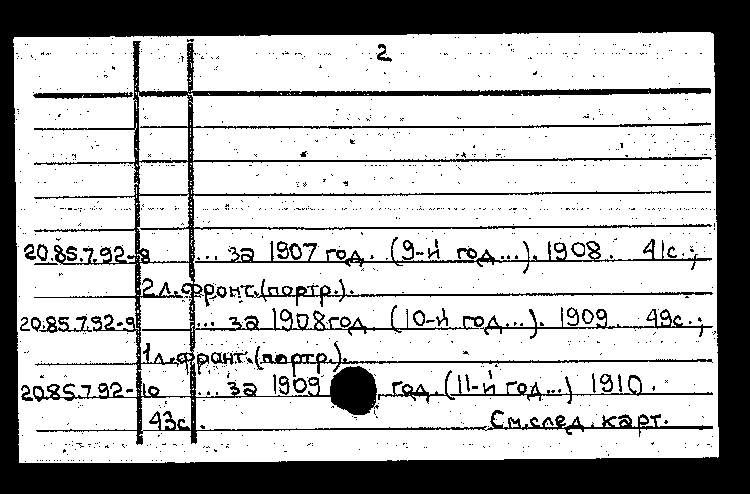 2
20.85.7.92-8 ... за 1907 год. (9-й год...). 1908. 41с.;
2л.фронт.(портр.).
20.85.7.92-9 ... за 1908 год. (10-й год...). 1909. 49с.;
1л.фронт.(портр.).
20.85.7.92-10 ... за 1909 год. (11-й год...) 1910.
43с. См.след. карт.